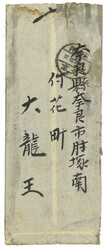 奈良縣奈良市肘塚南
付花町
大龍王